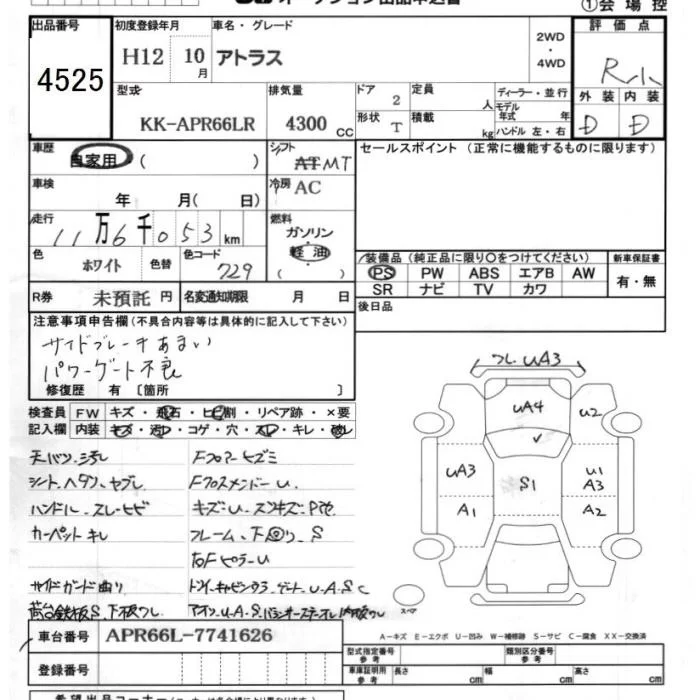 ①会場控
出品番号
4525
初度登録年月
H12 10月
車名・グレード
アトラス
2WD
・
4WD
評価点
外装 内装
D D
型式
KK-APR66LR
排気量
4300 CC
ドア
2
形状
T
定員
人
積載
kg
ディーラー・並行
モデル
年式 年
ハンドル 左・右
車歴
自家用 ( )
シフト
AT MT
セールスポイント (正常に機能するものに限ります)
車検
年 月( 日)
冷房
AC
走行
11万6千053km
燃料
ガソリン
軽油
( )
色
ホワイト
色替
色コード
729
装備品 (純正品に限り○をつけてください)
PS PW ABS エアB AW
SR ナビ TV カワ
新車保証書
有・無
R券 未預託 円
名変通知期限 月 日
後日品
注意事項申告欄 (不具合内容等は具体的に記入して下さい)
サイドブレーキあまい
パワーゲート不良
修復歴 有 〔箇所 〕
検査員 FW キズ・飛石・ヒビ割・リペア跡・×要
記入欄 内装 キズ・汚レ・コゲ・穴・スレ・キレ・破レ
天バリ汚レ
Fフロアーヒズミ
シートヘタリ、ヤブレ
FクロスメンバーU
ハンドルスレヒビ
カーペットキレ
フレーム、下回りS
右FピラーU
サイドガード曲り
UA3
UA4
U2
UA3
U1
A3
S1
A1
A2
スペア
A－キズ E－エクボ U－凹み W－補修跡 S－サビ C－腐食 XX－交換済
車台番号 APR66L-7741626
登録番号
型式指定番号
参考
類別区分番号
参考
車庫証明用
参考
長さ cm 幅 cm 高さ cm